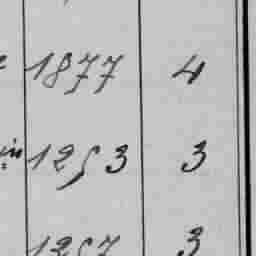 1877 4
1253 3
1257 3